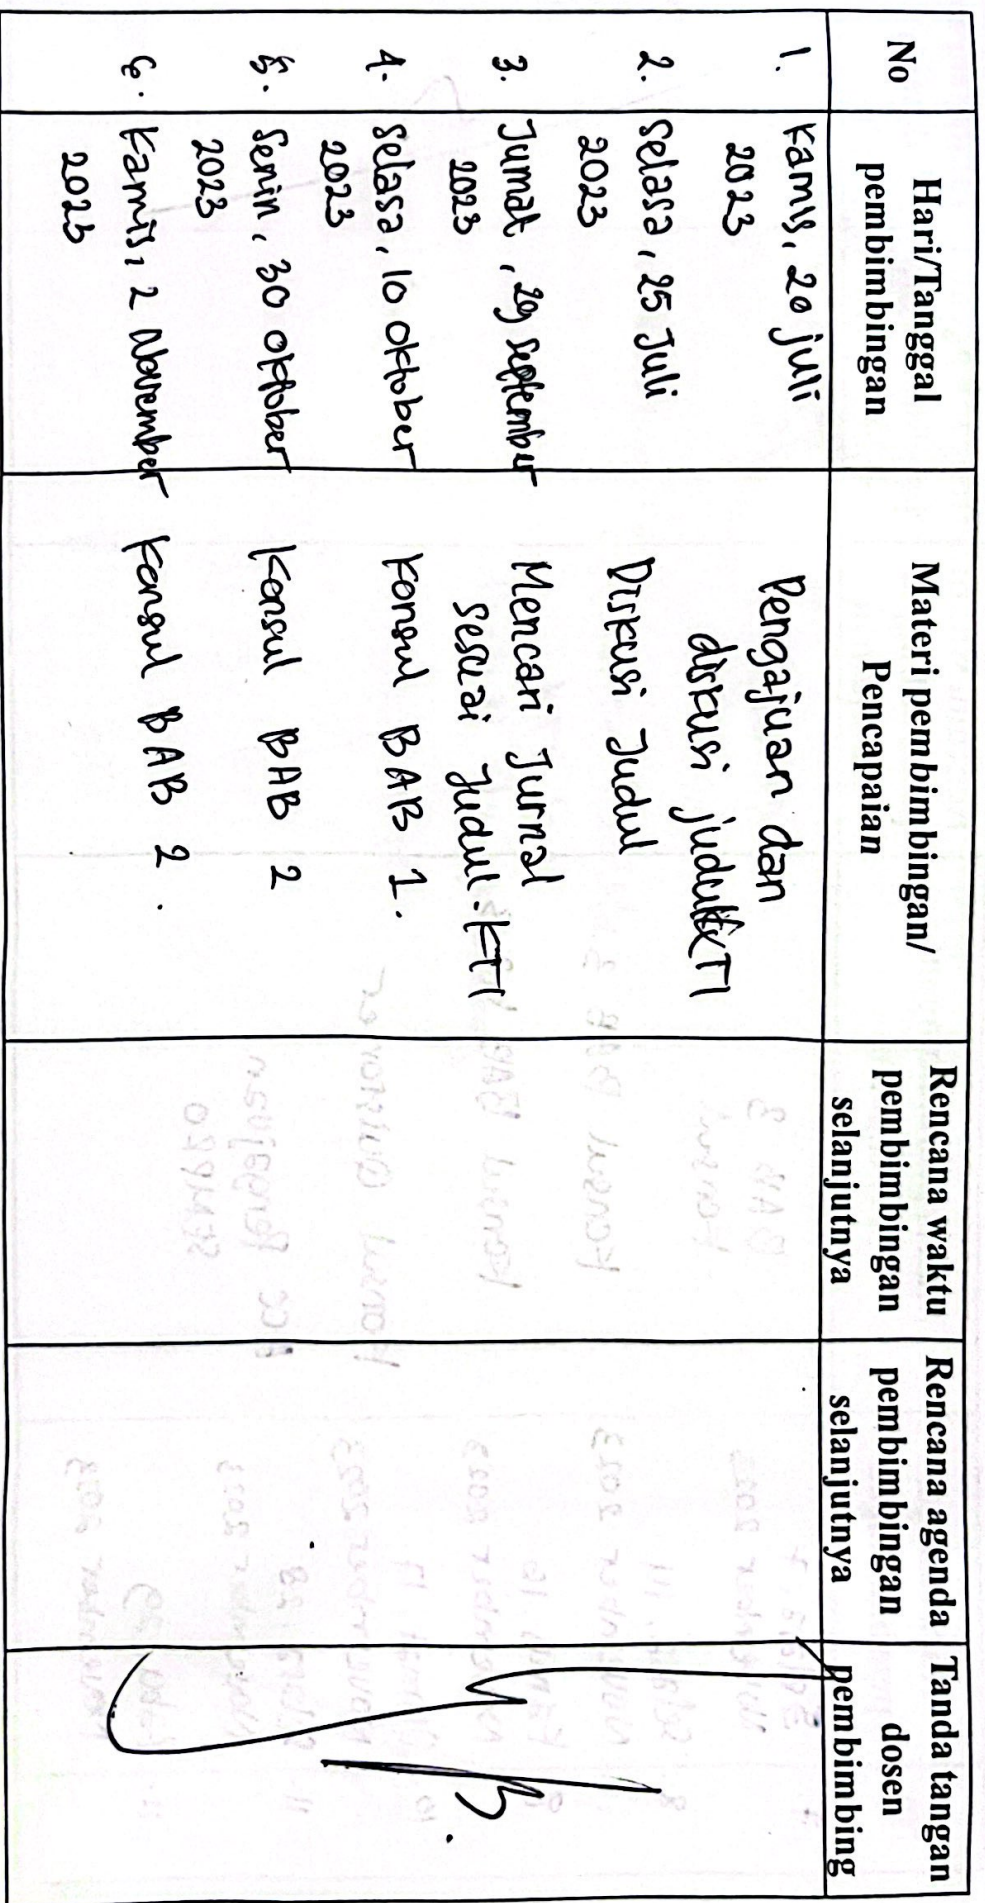 No
Hari/Tanggal
pembimbingan
Materi pembimbingan/
Pencapaian
Rencana waktu
pembimbingan
selanjutnya
Rencana agenda
pembimbingan
selanjutnya
Tanda tangan
dosen
pembimbing
1. Kamis, 20 juli
2023
Pengajuan dan
diskusi judul KTI
2. Selasa, 25 Juli
2023
Diskusi Judul
3. Jumat, 29 September
2023
Mencari Jurnal
sesuai Judul.KTI
4. Selasa, 10 oktober
2023
Konsul BAB 1.
5. Senin, 30 oktober
2023
Konsul BAB 2
6. Kamis, 2 November
2023
Konsul BAB 2.